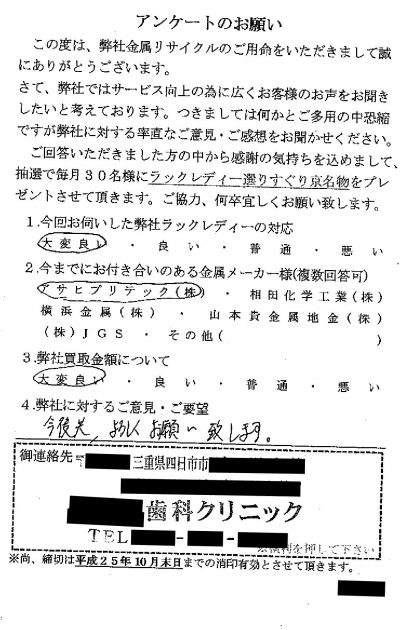 アンケートのお願い
この度は、弊社金属リサイクルのご用命をいただきまして誠
にありがとうございます。
さて、弊社ではサービス向上の為に広くお客様のお声をお聞き
したいと考えております。つきましては何かとご多用の中恐縮
ですが弊社に対する率直なご意見・ご感想をお聞かせください。
ご回答いただきました方の中から感謝の気持ちを込めまして、
抽選で毎月３０名様にラックレディー選りすぐり京名物をプレ
ゼントさせて頂きます。ご協力、何卒宜しくお願い致します。
１.今回お伺いした弊社ラックレディーの対応
大変良い ・ 良い ・ 普通 ・ 悪い
２.今までにお付き合いのある金属メーカー様(複数回答可)
アサヒプリテック(株) ・ 相田化学工業(株)
横浜金属(株) ・ 山本貴金属地金(株)
(株)ＪＧＳ ・ その他( )
３.弊社買取金額について
大変良い ・ 良い ・ 普通 ・ 悪い
４.弊社に対するご意見・ご要望
今後共、よろしくお願い致します。
御連絡先 三重県四日市市
歯科クリニック
ＴＥＬ - -
を押して下さい
※尚、締切は平成２５年１０月末日までの消印有効とさせて頂きます。